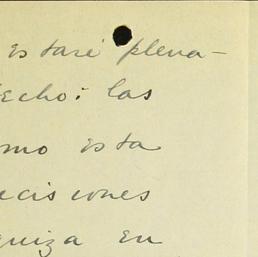 estaré plena-
echo: las
mo esta
ecisiones
quiza en